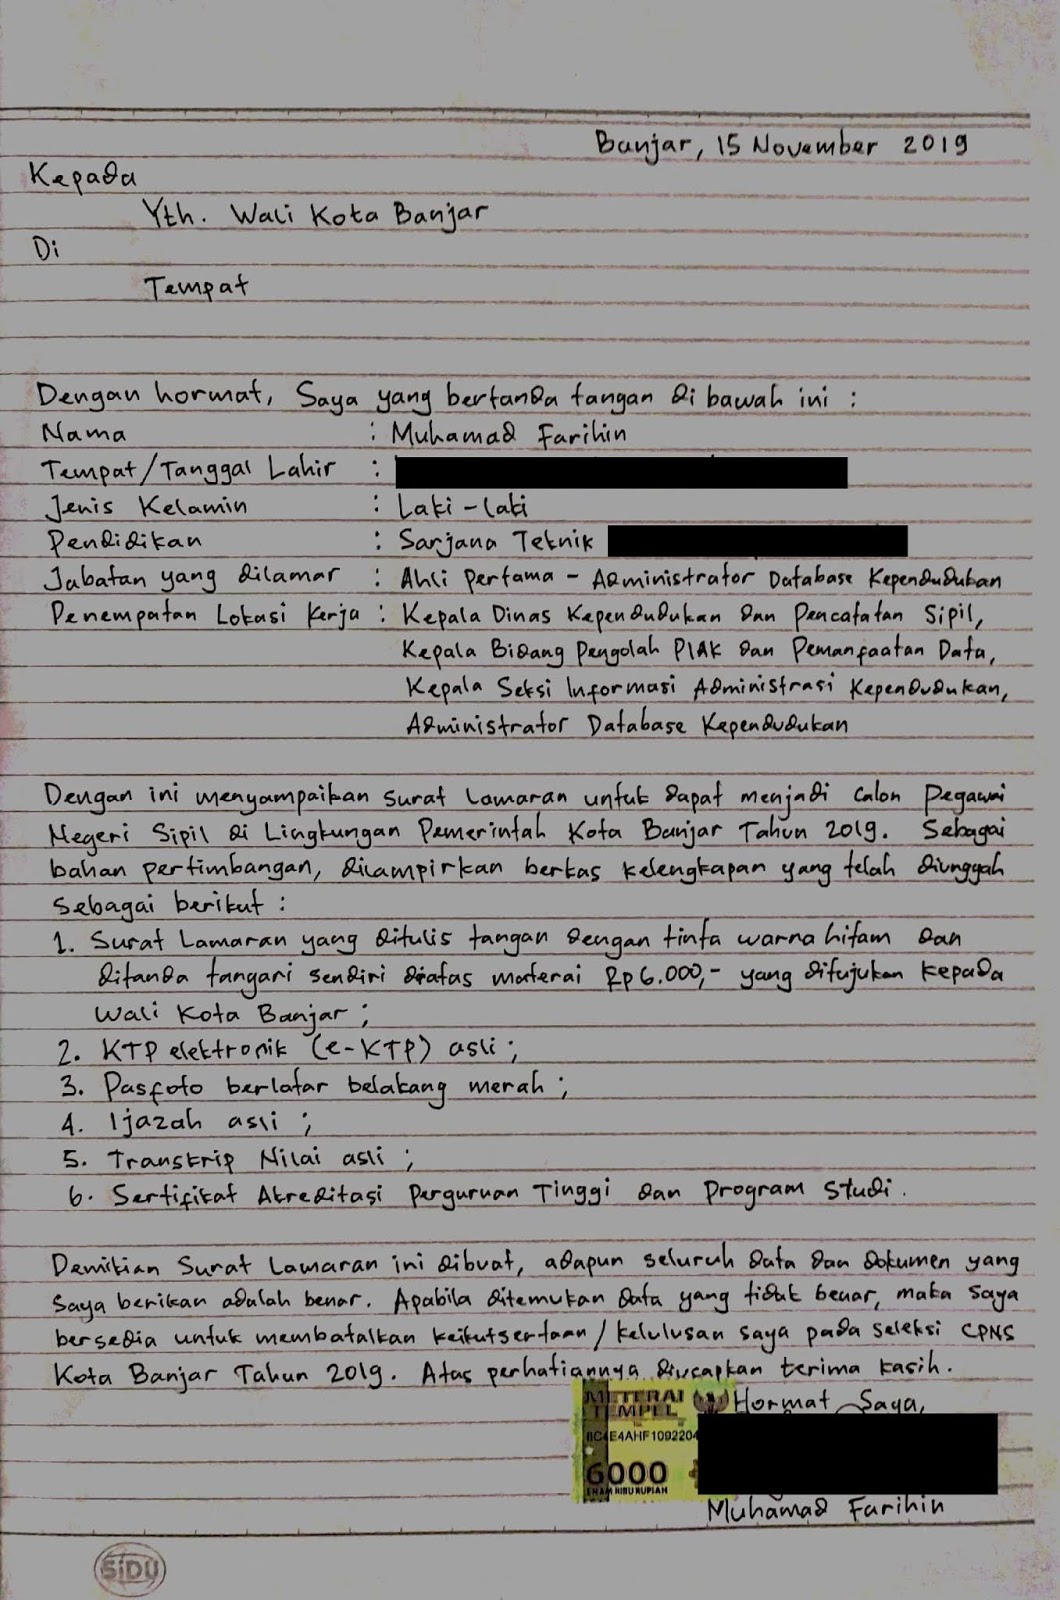 Banjar, 15 November 2019
Kepada
Yth. Wali Kota Banjar
Di
Tempat
Dengan hormat, Saya yang bertanda tangan di bawah ini :
Nama : Muhamad Farihin
Tempat/Tanggal Lahir :
Jenis Kelamin : Laki-laki
Pendidikan : Sarjana Teknik
Jabatan yang dilamar : Ahli Pertama - Administrator Database Kependudukan
Penempatan Lokasi Kerja : Kepala Dinas Kependudukan dan Pencatatan Sipil,
Kepala Bidang Pengolah PIAK dan Pemanfaatan Data,
Kepala Seksi Informasi Administrasi Kependudukan,
Administrator Database Kependudukan
Dengan ini menyampaikan surat lamaran untuk dapat menjadi Calon Pegawai
Negeri Sipil di Lingkungan Pemerintah Kota Banjar Tahun 2019. Sebagai
bahan pertimbangan, dilampirkan berkas kelengkapan yang telah diunggah
sebagai berikut :
1. Surat Lamaran yang ditulis tangan dengan tinta warna hitam dan
ditanda tangari sendiri diatas materai Rp 6.000,- yang ditujukan kepada
Wali Kota Banjar ;
2. KTP elektronik (e-KTP) asli ;
3. Pasfoto berlatar belakang merah ;
4. Ijazah asli ;
5. Transkrip Nilai asli ;
6. Sertifikat Akreditasi Perguruan Tinggi dan Program Studi.
Demikian Surat Lamaran ini dibuat, adapun seluruh data dan dokumen yang
saya berikan adalah benar. Apabila ditemukan data yang tidak benar, maka saya
bersedia untuk membatalkan keikutsertaan/kelulusan saya pada seleksi CPNS
Kota Banjar Tahun 2019. Atas perhatiannya diucapkan terima kasih.
Hormat Saya,
METERAI
TEMPEL
6000
ENAM RIBU RUPIAH
Muhamad Farihin
SiDU